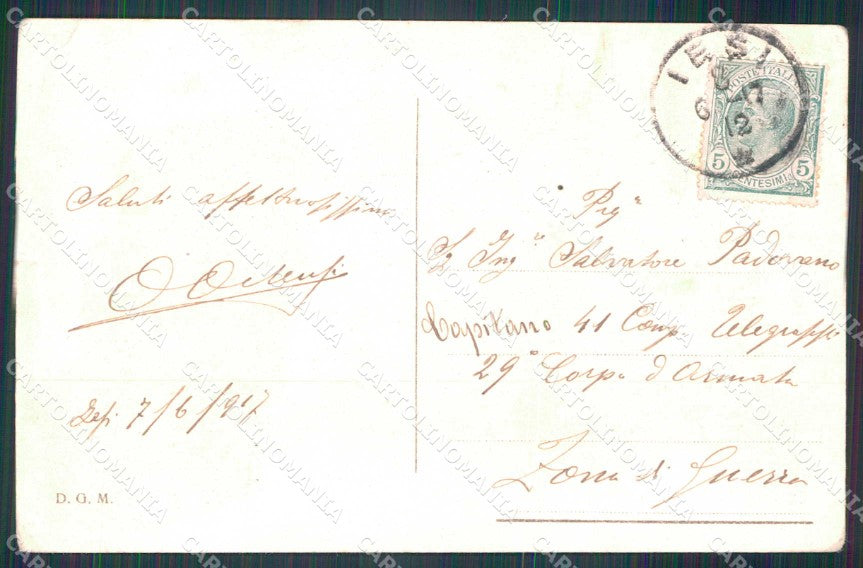 IESI
6 17
12
POSTE ITALIANE
5 CENTESIMI 5
Saluti affettuosissimi
Iesi 7/6/917
D. G. M.
Prg°
Sg Ing° Salvatore Padovano
Capitano 41 Comp. Telegrafisti
29° Corpo d'Armata
Zona di Guerra
CARTOLINOMANIA